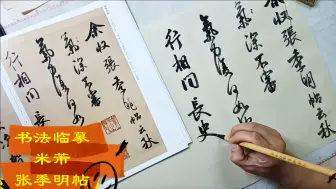 余收張季明帖云秋
氣深不審
氣力復何如也
行相間長史
余收張季明帖云秋
氣深不審
氣力復何如也
行相間長史
书法临摹
米芾
张季明帖